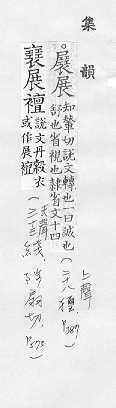 集韻
展知輦切說文轉也一曰誠也
舒也省視也隸省文十四
上聲
(二十八獮)
P.389
展襢說文丹縠衣
或作展襢
去聲
(三十三線、陟扇切.
P.573)